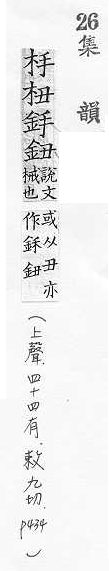 26
集韻
杽杻鈕說文械也或从丑亦作鈕
(上聲.四十四有.敕九切.P434)